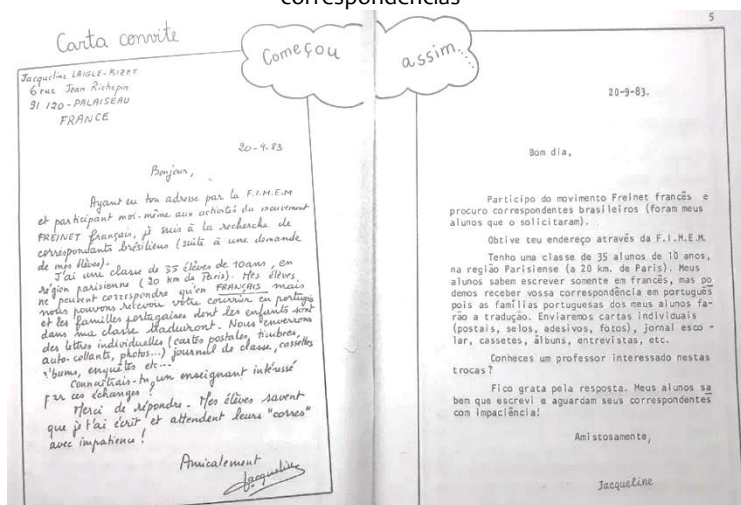 correspondências
Carta convite
Começou
Jacqueline LAIGLE-BIZET
6 rue Jean Richepin
91 120 - PALAISEAU
FRANCE
20-9-83
Bonjour,
Ayant eu ton adresse par la F.I.M.E.M
et participant moi-même aux activités du mouvement
FREINET français, je suis à la recherche de
correspondants brésiliens (suite à une demande
de mes élèves).
J'ai une classe de 35 élèves de 10 ans, en
région parisienne (20 km de Paris). Mes élèves
ne peuvent correspondre qu'en FRANÇAIS mais
nous pouvons recevoir votre courrier en portugais
et les familles portugaises dont les enfants sont
dans ma classe traduiront. Nous enverrons
des lettres individuelles (cartes postales, timbres,
auto-collants, photos...) journal de classe, cassettes
albums, enquêtes etc...
Connaîtrais-tu un enseignant intéressé
par ces échanges ?
Merci de répondre. Mes élèves savent
que je t'ai écrit et attendent leurs "corres"
avec impatience !
Amicalement
Jacqueline
5
assim...
20-9-83.
Bom dia,
Participo do movimento Freinet francês e
procuro correspondentes brasileiros (foram meus
alunos que o solicitaram).
Obtive teu endereço através da F.I.M.E.M.
Tenho uma classe de 35 alunos de 10 anos,
na região Parisiense (a 20 km. de Paris). Meus
alunos sabem escrever somente em francês, mas po
demos receber vossa correspondência em português
pois as famílias portuguesas dos meus alunos fa-
rão a tradução. Enviaremos cartas individuais
(postais, selos, adesivos, fotos), jornal esco -
lar, cassetes, álbuns, entrevistas, etc.
Conheces um professor interessado nestas
trocas?
Fico grata pela resposta. Meus alunos sa
bem que escrevi e aguardam seus correspondentes
com impaciência!
Amistosamente,
Jacqueline